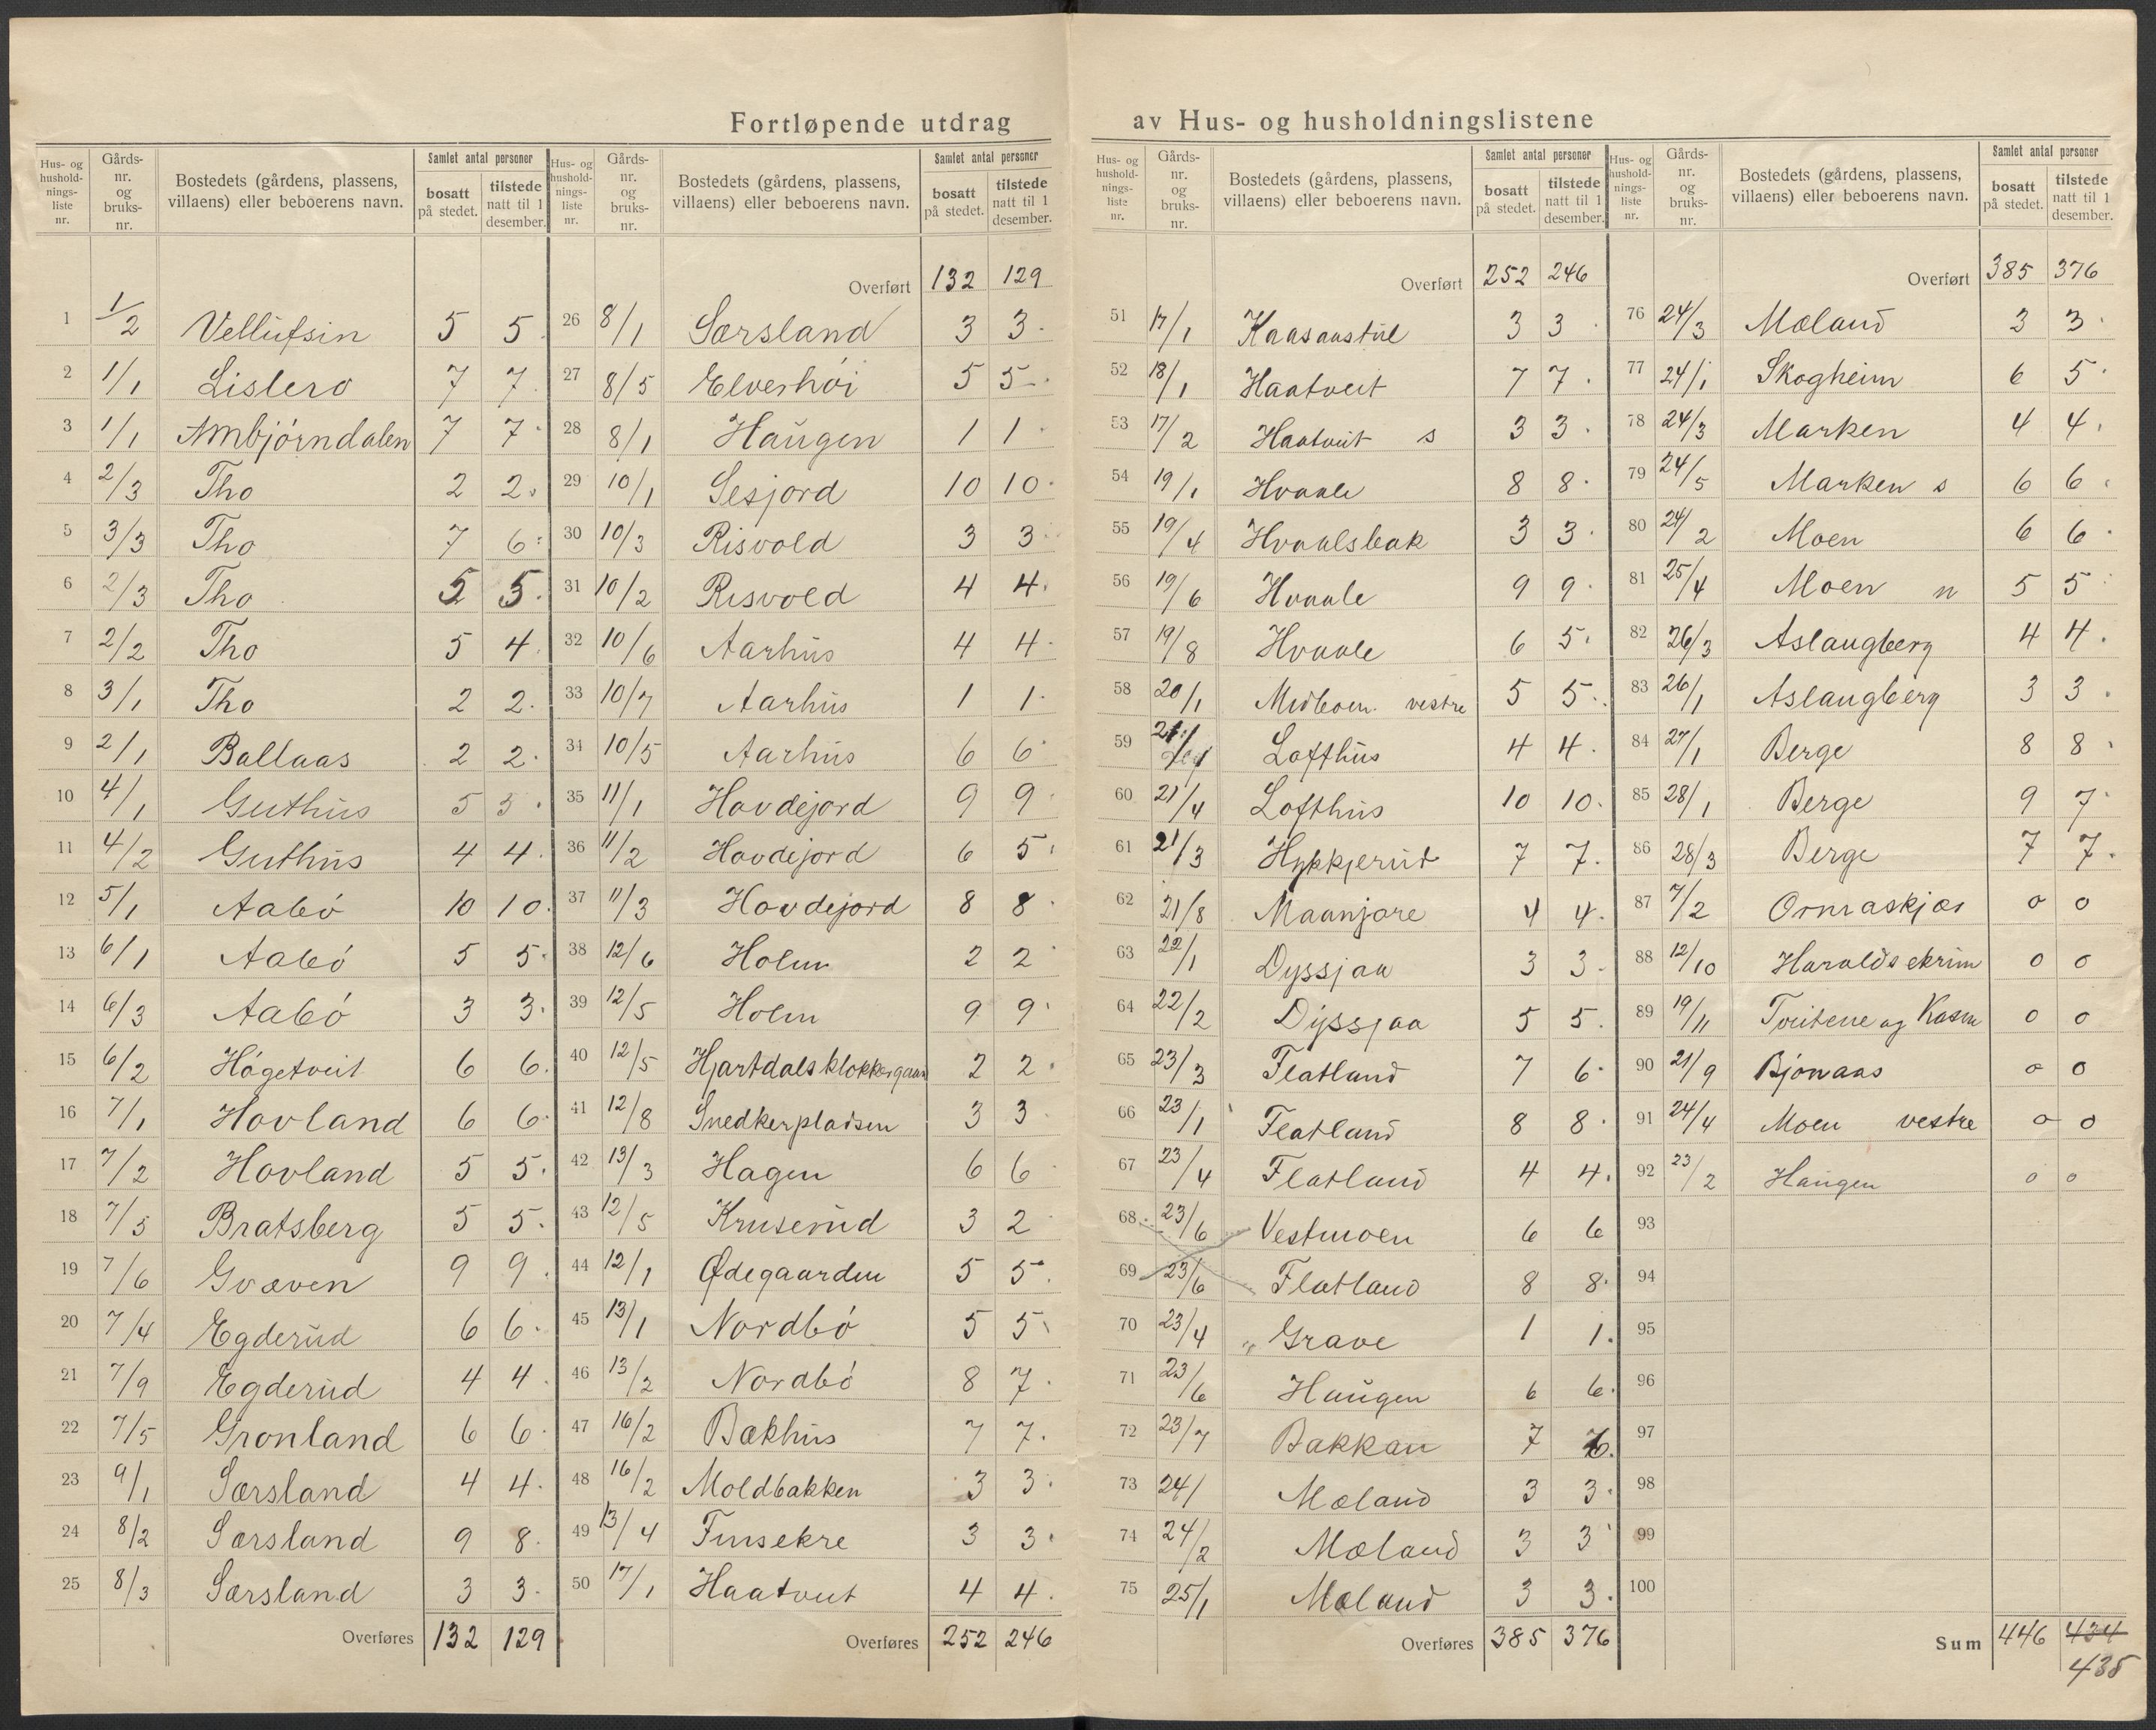 Fortløpende utdrag av Hus- og husholdningslistene
Hus- og husholdnings-liste nr. | Gårds-nr. og bruks-nr. | Bostedets (gårdens, plassens, villaens) eller beboerens navn. | Samlet antal personer | bosatt på stedet. | tilstede natt til 1 desember.
1 1/2 Vellufsin 5 5
2 1/1 Lislero 7 7
3 1/1 Ambjørndalen 7 7
4 2/3 Tho 2 2
5 3/3 Tho 7 6
6 2/3 Tho 5 5
7 2/2 Tho 5 4
8 3/1 Tho 2 2
9 2/1 Ballaas 2 2
10 4/1 Guthus 5 5
11 4/2 Guthus 4 4
12 5/1 Aabø 10 10
13 6/1 Aabø 5 5
14 6/3 Aabø 3 3
15 6/2 Høgetveit 6 6
16 7/1 Hovland 6 6
17 7/2 Hovland 5 5
18 7/3 Bratsberg 5 5
19 7/6 Gvæven 9 9
20 7/4 Egderud 6 6
21 7/9 Egderud 4 4
22 7/5 Grønland 6 6
23 9/1 Særsland 4 4
24 8/2 Særsland 9 8
25 8/3 Særsland 3 3
Overføres 132 129
Hus- og husholdnings-liste nr. | Gårds-nr. og bruks-nr. | Bostedets (gårdens, plassens, villaens) eller beboerens navn. | Samlet antal personer | bosatt på stedet. | tilstede natt til 1 desember.
Overført 132 129
26 8/1 Særsland 3 3
27 8/5 Elverhøi 5 5
28 8/1 Haugen 1 1
29 10/1 Sesjord 10 10
30 10/3 Risvold 3 3
31 10/2 Risvold 4 4
32 10/6 Aarhus 4 4
33 10/7 Aarhus 1 1
34 10/5 Aarhus 6 6
35 11/1 Hovdejord 9 9
36 11/2 Hovdejord 6 5
37 11/3 Hovdejord 8 8
38 12/6 Holm 2 2
39 12/5 Holm 9 9
40 12/5 Hjartdals klokkergaard 2 2
41 12/8 Snedkerpladsen 3 3
42 13/3 Hagen 6 6
43 12/5 Kruserud 3 2
44 12/1 Ødegaarden 5 5
45 13/1 Nordbø 5 5
46 13/2 Nordbø 8 7
47 16/2 Bækhus 7 7
48 16/2 Moldbakken 3 3
49 13/4 Finsekre 3 3
50 17/1 Haatveit 4 4
Overføres 252 246
Hus- og husholdnings-liste nr. | Gårds-nr. og bruks-nr. | Bostedets (gårdens, plassens, villaens) eller beboerens navn. | Samlet antal personer | bosatt på stedet. | tilstede natt til 1 desember.
Overført 252 246
51 17/1 Kaasaastul 3 3
52 18/1 Haatveit 7 7
53 17/2 Haatveit s 3 3
54 19/1 Hvaale 8 8
55 19/4 Hvaalsbak 3 3
56 19/6 Hvaale 9 9
57 19/8 Hvaale 6 5
58 20/1 Midboen vestre 5 5
59 Lofthus 4 4
60 21/4 Lofthus 10 10
61 21/3 Hykkjerut 7 7
62 21/8 Maanjore 4 4
63 22/1 Dyssjaa 3 3
64 22/2 Dyssjaa 5 5
65 23/3 Flatland 7 6
66 23/1 Flatland 8 8
67 23/4 Flatland 4 4
68 23/6 Vestmoen 6 6
69 23/6 Flatland 8 8
70 23/4 Grave 1 1
71 23/6 Haugen 6 6
72 23/7 Bakkan 7
73 24/ Mæland 3 3
74 24/2 Mæland 3 3
75 25/1 Mæland 3 3
Overføres 385 376
Hus- og husholdnings-liste nr. | Gårds-nr. og bruks-nr. | Bostedets (gårdens, plassens, villaens) eller beboerens navn. | Samlet antal personer | bosatt på stedet. | tilstede natt til 1 desember.
Overført 385 376
76 24/3 Mæland 3 3
77 24/1 Skogheim 6 5
78 24/3 Marken 4 4
79 24/5 Marken s 6 6
80 24/2 Moen 6 6
81 25/4 Moen n 5 5
82 26/3 Aslaugberg 4 4
83 26/1 Aslaugberg 3 3
84 27/1 Berge 8 8
85 28/1 Berge 9 7
86 28/3 Berge 7 7
87 7/2 Ormaskjær 0 0
88 12/10 Haraldsekrim 0 0
89 19/11 Tveitene og Kasin 0 0
90 21/9 Bjønaas 0 0
91 24/4 Moen vestre 0 0
92 23/2 Haugen 0 0
93
94
95
96
97
98
99
100
Sum 446 434
435